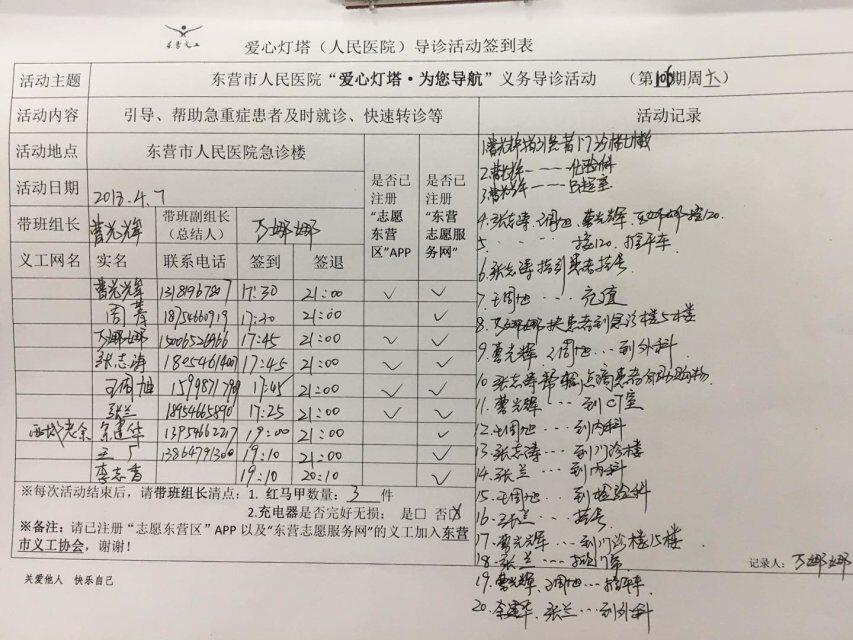 东营义工
爱心灯塔（人民医院）导诊活动签到表
活动主题 东营市人民医院“爱心灯塔·为您导航”义务导诊活动 （第106期周六）
活动内容 引导、帮助急重症患者及时就诊、快速转诊等 活动记录
活动地点 东营市人民医院急诊楼 是否已注册“志愿东营区”APP 是否已注册“东营志愿服务网”
活动日期 2018.4.7
带班组长 曹光辉 带班副组长（总结人） 万娜娜
义工网名 实名 联系电话 签到 签退
曹光辉 17:30 21:00 ✓ ✓
周菁 18754660919 17:30 21:00 ✓
万娜娜 15006526966 17:45 21:00 ✓ ✓
张志涛 18054614007 17:45 21:00 ✓ ✓
王周旭 17:45 21:00 ✓ ✓
张兰 18954665890 17:25 21:00 ✓ ✓
西城老余 余建华 13954662217 19:00 21:00 ✓
王广 13864791300 19:10 21:00 ✓
李志香 19:10 20:10 ✓
※每次活动结束后，请带班组长清点：1. 红马甲数量：3 件
2.充电器是否完好无损：是□ 否☒
※备注：请已注册“志愿东营区”APP 以及“东营志愿服务网”的义工加入东营
市义工协会，谢谢！
关爱他人 快乐自己
1.曹光辉指引患者门诊楼
2.曹光辉 化验科
3.曹光辉
4.张志涛、王周旭、曹光辉、万娜娜 接120.
5. 接120.推平车
6.张志涛指引患者挂号
7.王周旭…充值
8.万娜娜扶患者到急诊楼5楼
9.曹光辉、王周旭…到外科
10.张志涛帮输点滴患者
11.曹光辉…到CT室
12.王周旭…到内科
13.张志涛…到门诊楼
14.张兰…到内科
15.王周旭…到检验科
16.张兰…挂号
17.曹光辉…到门诊楼15楼
18.张兰
19.曹光辉、王周旭…推平车
20.余建华、张兰…到外科
记录人：万娜娜